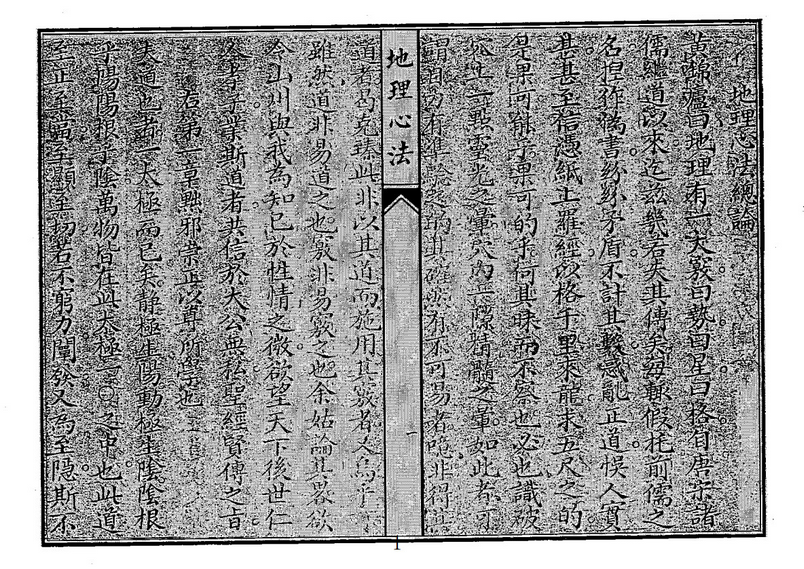 地理心法總論
黃歸爐曰地理有一大竅曰勢曰星曰格自唐宗諸
儒繼道以來迄茲幾若失其傳矣毋輒假托前儒之
名捏許偽書紛紛矛盾不計其數惑亂正道悞人實
甚甚至信憑紙上羅經以格千里來龍求五尺之的
是果可能乎果可的乎何其昧而不察也必也識破
一點靈光之暈穴內三隙精髓之暈如此者可
謂自有準驗之的其確然有不可易者噫非得
道者曷克臻此非以其道而施用其竅者又烏乎
雖然道非易道之也竅非易竅之也余姑論其畧欲
令山川與我為知己於性情之微欲望天下後世仁
人孝子業斯道者共信於大公無私聖經賢傳之旨
右第一章黜邪崇正以尊所學也
夫道也者一太極而已矣靜極生陽動極生陰陰根
乎陽陽根乎陰萬物皆在此太極一〇之中也此道
至正至當至顯至初若不窮力闡發又為至隱斯不
地理心法
一
1